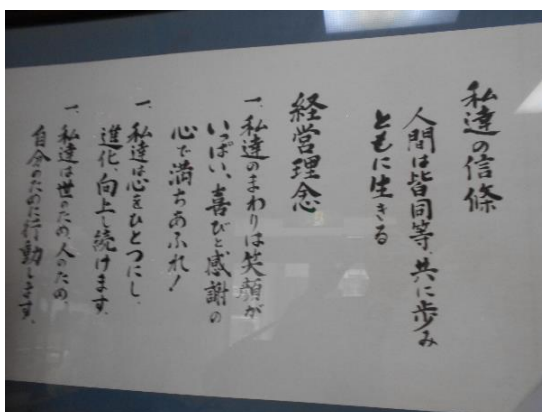 私達の信條
人間は皆同等、共に歩み
ともに生きる
経営理念
一、私達のまわりは笑顔が
いっぱい、喜びと感謝の
心で満ちあふれ!
一、私達は心をひとつにし、
進化、向上し続けます。
一、私達は世のため、人のため、
自分のために行動します。